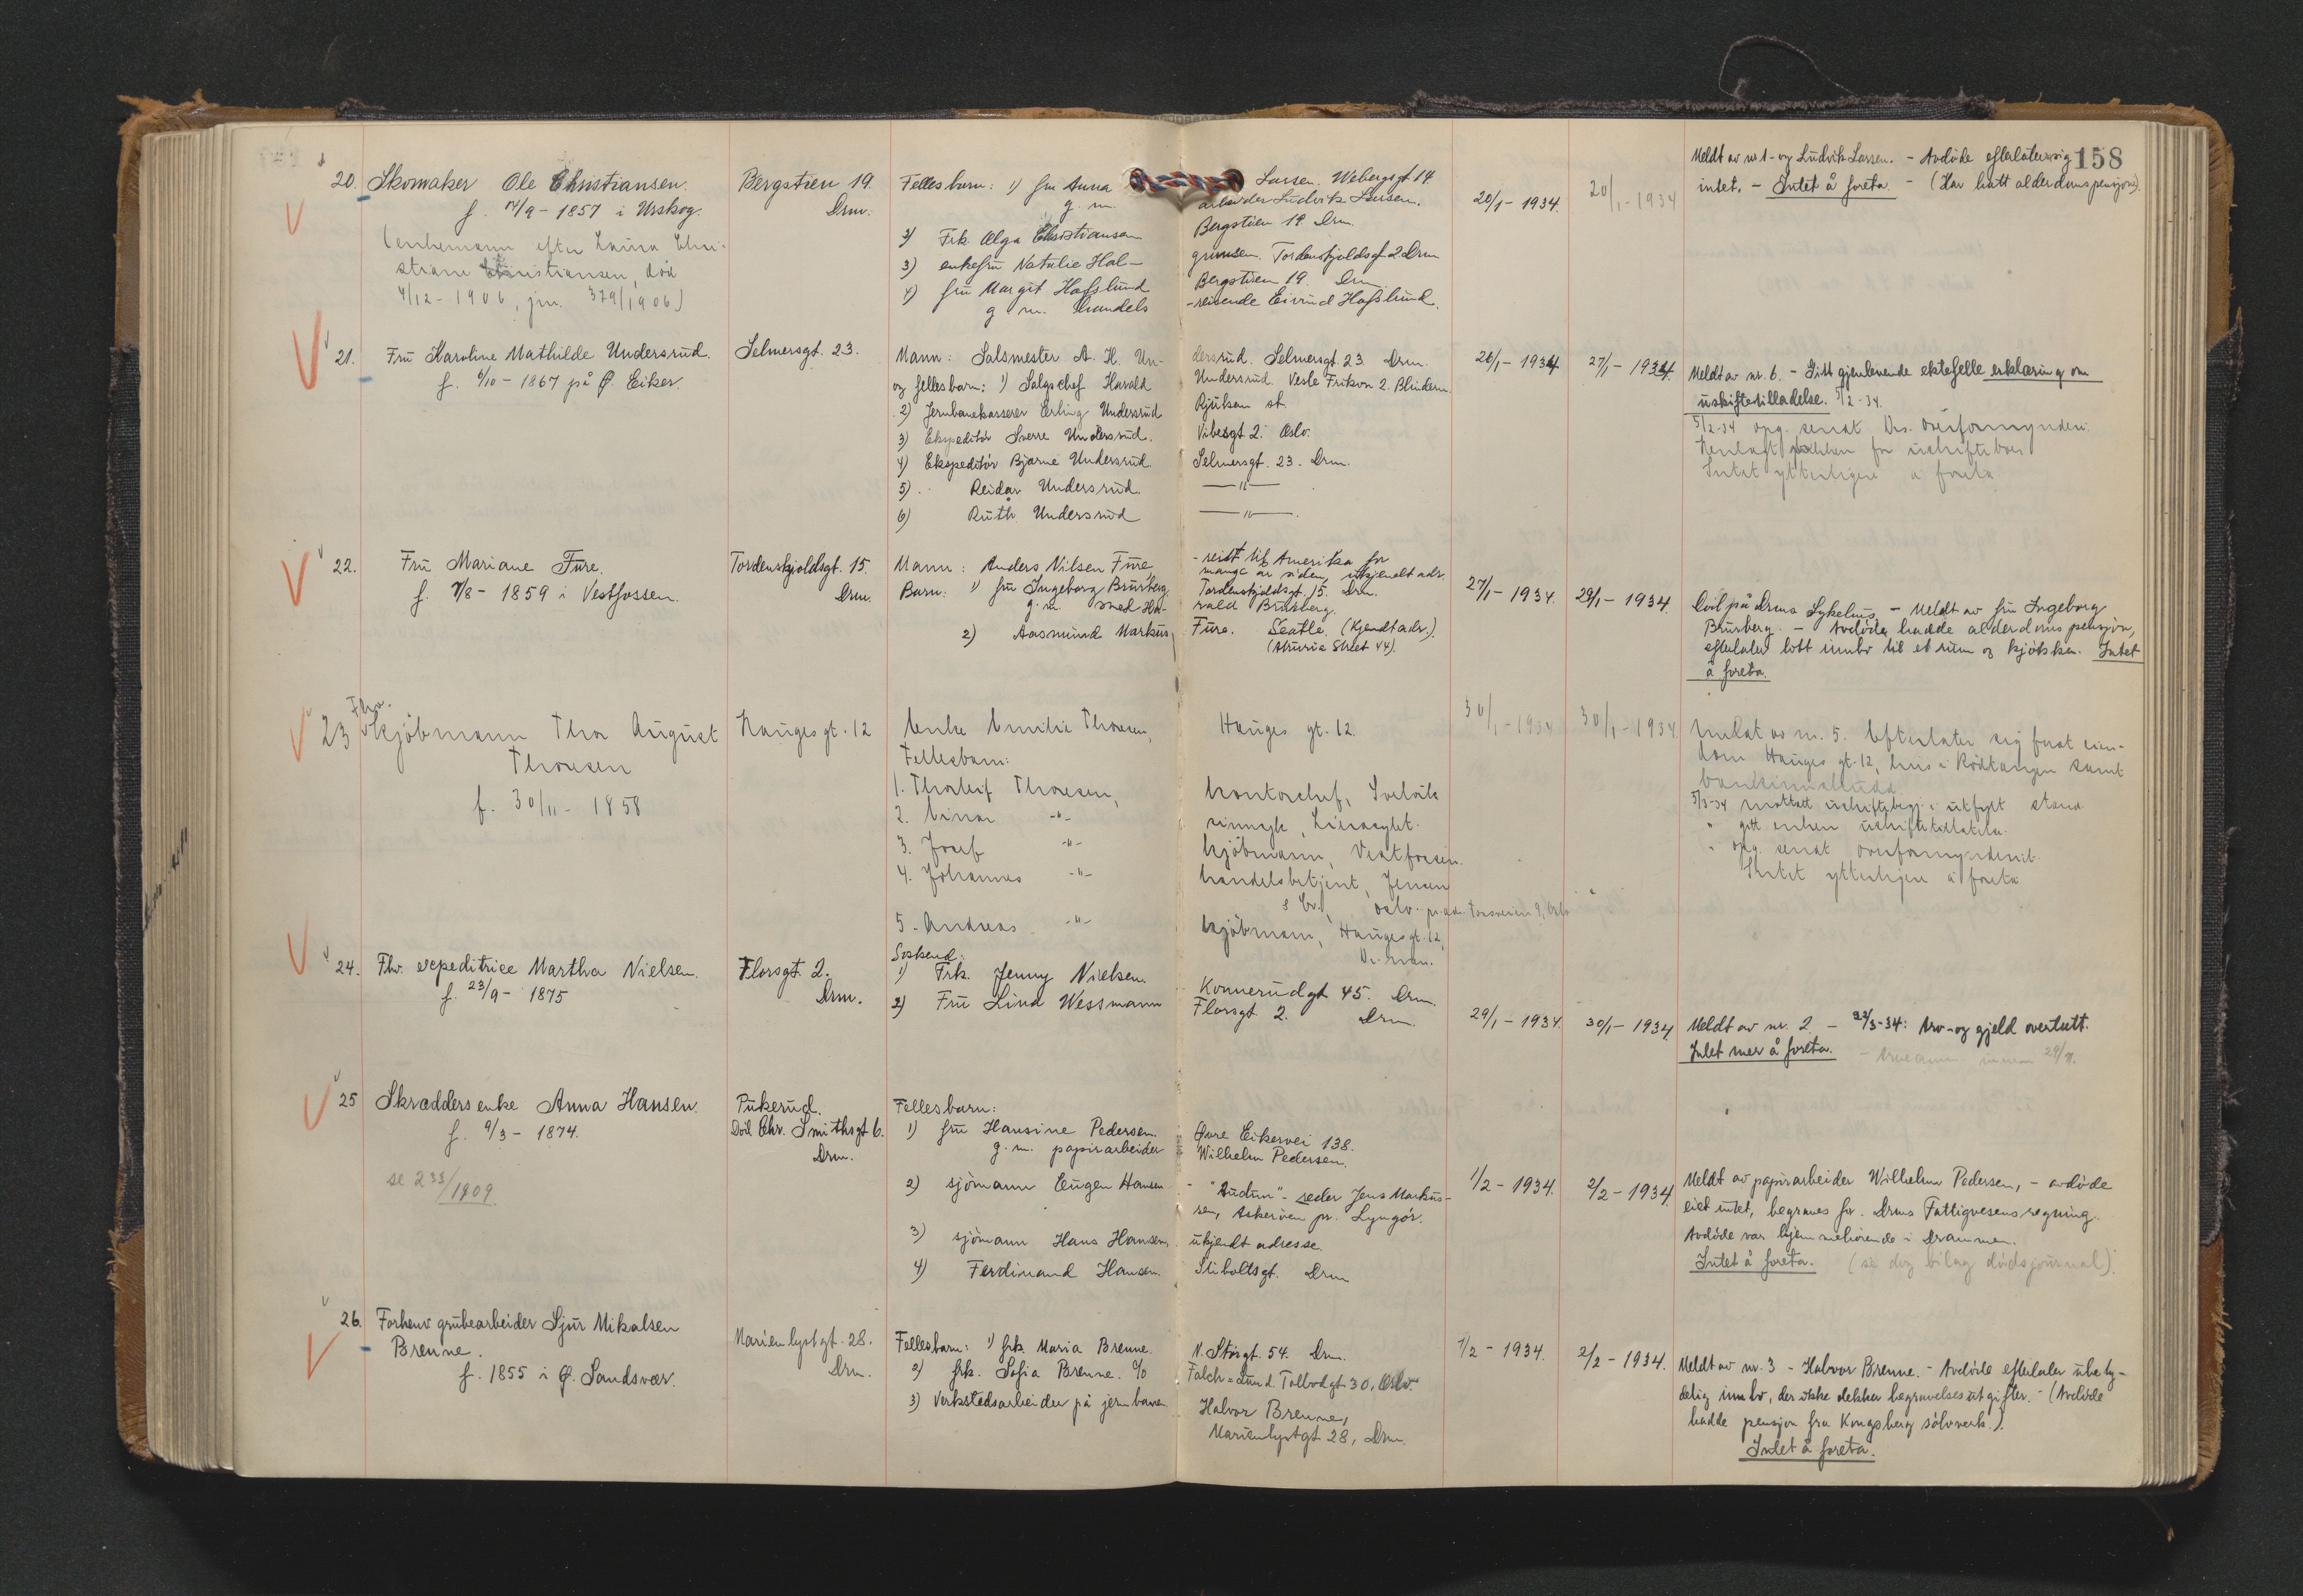 158
20. Skomaker Ole Christiansen.
f. 14/9 - 1857 i Urskog.
(enkemann efter Laura Chri-
stiane Christiansen, död
4/12 - 1906, jnr. 379/1906)
Bergstien 19.
Drm.
Fellesbarn: 1) fru Anna Larsen. Webergsgt 14
g. m. arbeider Ludvik Larsen.
Bergstien 19 Drm.
2) Frk. Olga Christiansen
3) enkefru Natalie Hal- grimsen. Tordenskjoldsgt. 2 Drm
4) fru Margit Hafslund Bergstien 19. Drm.
g. m. handels -reisende Eivind Hafslund.
20/1 - 1934. 20/1 - 1934
Meldt av nr 1 - og Ludvik Larsen. - Avdöde efterlater sig
intet. - Intet å foreta. - (Har hatt alderdomspensjon).
21. Fru Karoline Mathilde Undersrud.
f. 6/10 - 1867 på Ø. Eiker.
Selmersgt. 23.
Mann: Salsmester A. H. Un- dersrud. Selmersgt. 23 Drm.
og fellesbarn: 1) Salgschef Harald Undersrud. Vesle Frikvn 2. Blindern
2) Jernbanekasserer Erling Undersrud Rjukan st.
3) Ekspeditör Sverre Undersrud. Vibesgt 2. Oslo.
4) Ekspeditör Bjarne Undersrud. Selmersgt. 23. Drm.
5) Reidar Undersrud. —"—
6) Ruth Undersrud —"—
26/1 - 1934 27/1 - 1934.
Meldt av nr. 6. - Gitt gjenlevende ektefelle erklæring om
uskiftetilladelse. 5/2-34.
5/2-34 opg. sendt Drs. overformynderi.
for uskiftebo
Intet ytterligere å foreta
22. Fru Mariane Fure.
f. 7/8 - 1859 i Vestfossen.
Tordenskjoldsgt. 15.
Drm.
Mann: Anders Nilsen Fure, - reist til Amerika for
mange år siden, ukjendt adr.
Barn: 1) fru Ingeborg Brusberg, Tordenskjoldsgt. 15. Drm.
g. m. med Ha- rald Brusberg.
2) Aasmund Markus Fure. Seatle. (Kjendt adr.)
(Street 44).
27/1 - 1934. 29/1 - 1934.
Död på Drms Sykehus - Meldt av fru Ingeborg
Brusberg. - Avdöde hadde alderdomspensjon,
efterlater litt innbo til et rum og kjökken. Intet
å foreta.
23 Fhv. kjöbmann Thor August
Thoresen
f. 30/11 - 1858
Hauges gt. 12
Enke Emilie Thoresen, Hauges gt. 12.
Fellesbarn:
1. Thorleif Thoresen, kontorchef, Svelvik
2. Einar -"- sinnsyk, Lierasylet.
3. Josef -"- kjöbmann, Vestfossen.
4. Johannes -"- handelsbetjent, Jensen
& Co., Oslo.
5. Andreas -"- kjöbmann, Hauges gt. 12,
Drammen.
30/1 - 1934 30/1 - 1934.
Meldt av nr. 5. Efterlater sig fast eien-
dom Hauges gt. 12, hus i Rödtangen samt
bankinnskudd
5/3-34 mottatt uskiftebegj. i utfylt stand.
" gitt enken uskiftetillatelse.
" opg. sendt overformynderiet.
Intet ytterligere å foreta
24. Fhv. expeditrice Martha Nielsen.
f. 23/9 - 1875
Florsgt. 2.
Drm.
Söskend:
1) Frk. Jenny Nielsen. Konnerudgt 45. Drm.
2) Fru Lina Wessmann Florsgt 2. Drm.
29/1 - 1934. 30/1 - 1934
Meldt av nr. 2 - 22/3-34: Arv- og gjeld overtatt.
Intet mer å foreta.
25 Skredders enke Anna Hansen.
f. 9/3 - 1874.
se 233/1909.
Pukerud.
Död Chr. Smithsgt 6.
Drm.
Fellesbarn:
1) fru Hansine Pedersen. Øvre Eikervei 138.
g. m. papirarbeider Wilhelm Pedersen.
2) sjömann Eugen Hansen - "Audun" - reder Jens Markus-
sen, Askeröen pr. Lyngör.
3) sjömann Hans Hansen, ukjendt adresse.
4) Ferdinand Hansen. Stiboltsgt. Drm
1/2 - 1934. 2/2 - 1934
Meldt av papirarbeider Wilhelm Pedersen, - avdöde
eiet intet, begraves for Drms Fattigvesens regning.
Avdöde var hjemmehörende i Drammen.
Intet å foreta. (se dog bilag dödsjournal).
26. Forhenv grubearbeider Sjur Mikalsen
Brenne.
f. 1855 i Ø. Sandsvær.
Marienlystgt. 28.
Drm.
Fellesbarn: 1) frk. Maria Brenne. N. Storgt. 54. Drm.
2) frk. Sofia Brenne. c/o Falch=Lund Tollbodgt 30, Oslo.
3) Verkstedsarbeider på jernbanen Halvor Brenne,
Marienlystgt 28, Drm.
1/2 - 1934. 2/2 - 1934.
Meldt av nr. 3 - Halvor Brenne. - Avdöde efterlater ubety-
delig innbo, der ikke dekker begravelsesutgifter. - (Avdöde
hadde pensjon fra Kongsberg sölvverk.).
Intet å foreta.